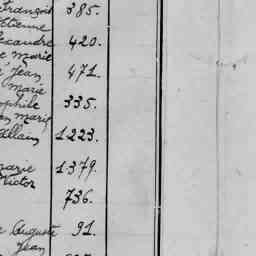 François 385.
Etienne
exandre 420.
e marie
Jean 471.
Marie
ophile 335.
marie
allain 1223.
marie 1379.
Victor
736.
Auguste 91.
Jean